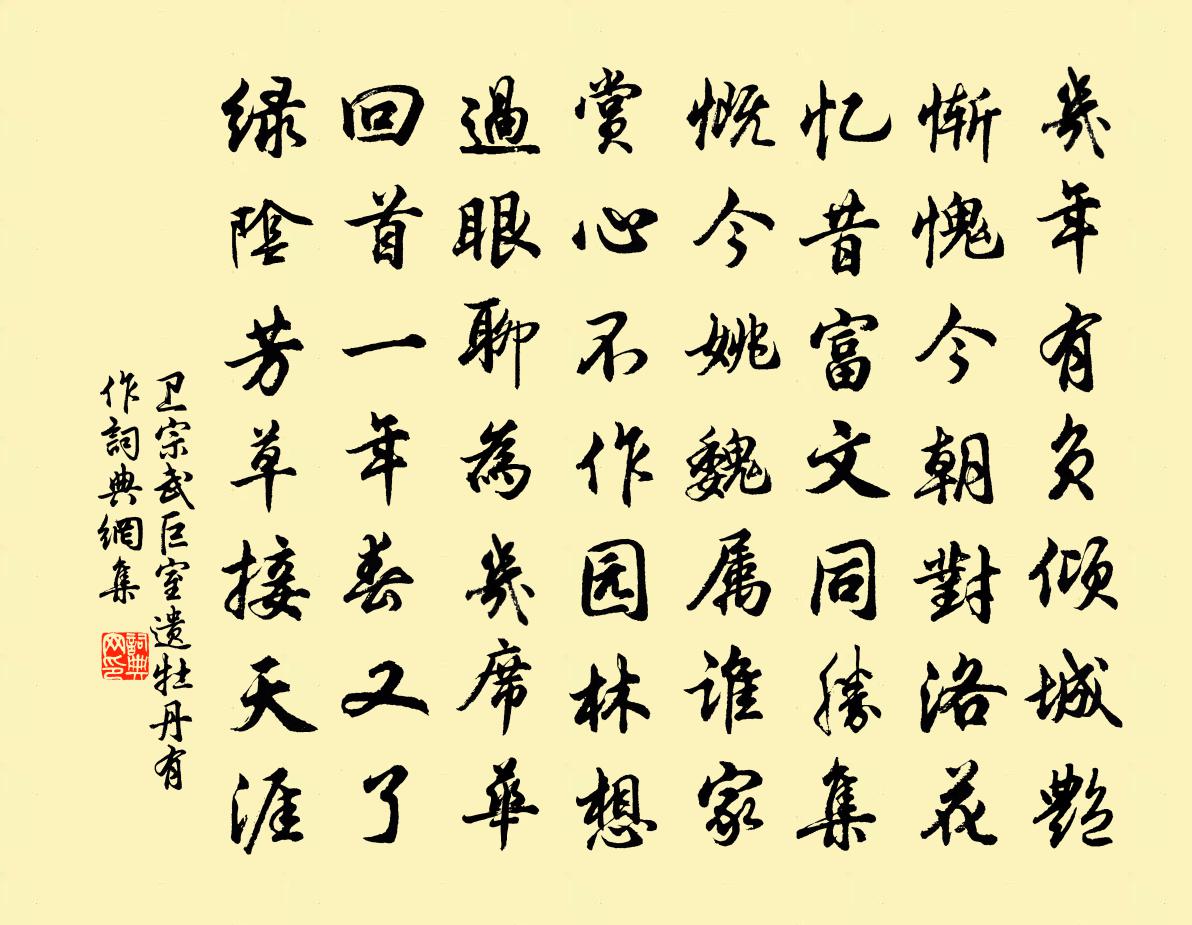 幾年有负倾城艷
惭愧今朝對洛花
忆昔富文同勝集
慨今姚魏属谁家
赏心不作园林想
過眼聊為幾席華
回首一年春又了
绿陰芳草接天涯
卫宗武巨室遗牡丹有
作詞典網集
詞典网印